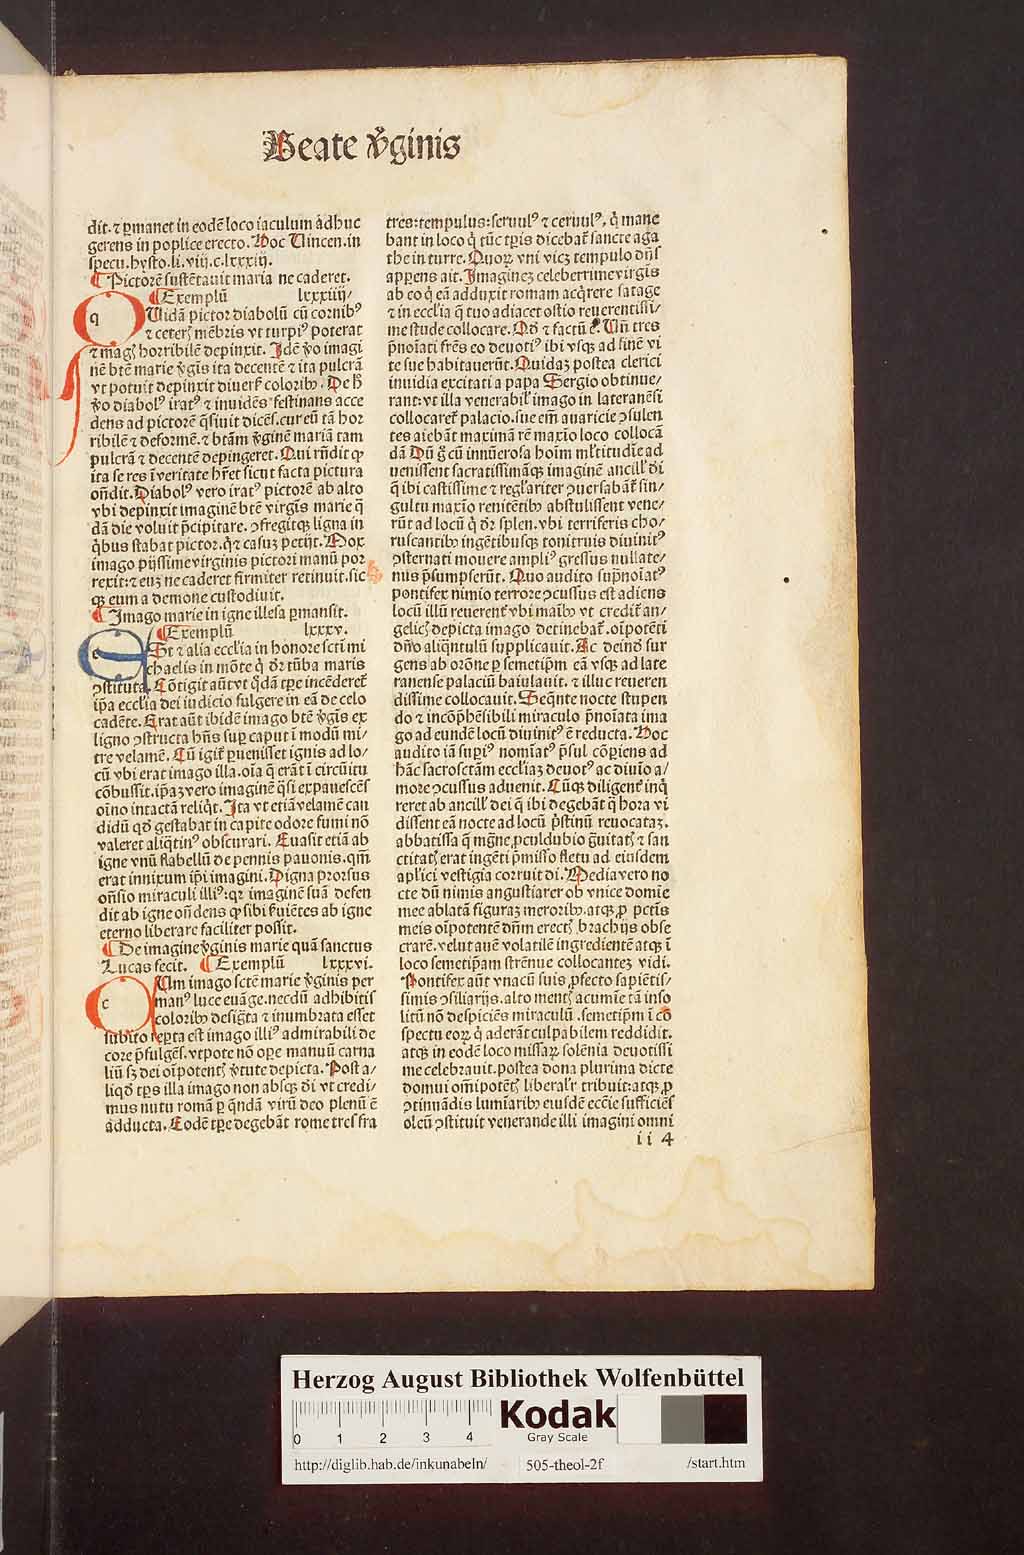 Beate v̾ginis
dit. ⁊ p̲manet in eodē loco iaculum adhuc
gerens in poplice erecto. Hoc Vincen. in
specu. hysto. li. viij. c. lxxxiij.
¶ Pictorē sustētauit maria ne caderet.
¶ Exemplū lxxxiiij/
QUidā pictor diabolū cū cornibꝰ
⁊ ceteꝝ mēbris vt turpiꝰ poterat
⁊ magꝭ horribilē depinxit. Idē v̾o imagi
nē btē marie v̾gīs ita decentē ⁊ ita pulcrā
vt potuit depinxit diuersꝭ coloribꝰ. De h̾
v̾o diabolꝰ iratꝰ ⁊ inuidēs festinans acce
dens ad pictorē q̄siuit dicēs. cur eū tā hor
ribilē ⁊ deformē. ⁊ btām v̾ginē mariā tam
pulcrā ⁊ decentē depingeret. Qui rn̄dit ꝙ
ita se res ī veritate hr̄et sicut facta pictura
on̄dit. Diabolꝰ vero iratꝰ pictorē ab alto
vbi depinxit imaginē btē virgīs marie q̄
dā die voluit p̄cipitare. ꝯfregitqꝫ ligna in
q̇bus stabat pictor. q̇ ⁊ casuꝫ petijt. Mox
imago pijssime virginis pictori manū por
rexit: ⁊ euꝫ ne caderet firmiter retinuit. sic
qꝫ eum a demone custodiuit.
¶ Imago marie in igne illesa p̲mansit.
¶ Exemplū lxxxv.
ESt ⁊ alia eccl̄ia in honore scti mi
chaelis in mōte q̇ dr̄ tūba maris
ꝯstituta. Cōtigit aūt vt q̇dā tp̲e incēderet̄
ip̄a eccl̄ia dei iudicio fulgere in eā de celo
cadēte. Erat aūt ibidē imago btē v̾gīs ex
ligno ꝯstructa hn̄s sup̲ caput ī modū mi/
tre velamē. Cū igit̄ p̲uenisset ignis ad lo/
cū vbi erat imago illa. oīa q̄ erāt ī circūitu
cōbussit. ip̄aꝫ vero imaginē q̄si expauescēs
oīno intactā reliq̇t. Ita vt etiā velamē can
didū qd̓ gestabat in capite odore fumi nō
valeret aliq̇tinꝰ obscurari. Euasit etiā ab
igne vnū flabellū de pennis pauonis. qm̄
erat innixum ip̄i imagini. Digna prorsus
on̄sio miraculi illiꝰ: qꝛ imaginē suā defen
dit ab igne on̄dens ꝙ sibi ẜuiētes ab igne
eterno liberare faciliter possit.
¶ De imagine v̾ginis marie quā sanctus
Lucas fecit. ¶ Exemplū lxxxvi.
CUm imago sctē marie v̾ginis per
manꝰ luce euāge. necdū adhibitis
coloribꝰ desig̅ta ⁊ inumbrata esset
subito rep̲ta est imago illiꝰ admirabili de
core p̄fulgēs. vtpote nō op̲e manuū carna
liū sꝫ dei oīpotentꝭ v̾tute depicta. Post a/
liqd̓ tp̲s illa imago non absqꝫ di vt credi/
mus nutu romā p̲ q̄ndā virū deo plenū ē
adducta. Eodē tp̲e degebāt rome tres fra
tres: tempulus: seruulꝰ ⁊ ceruulꝰ, q̇ mane
bant in loco q̇ tūc tp̲is dicebat̄ sancte aga
the in turre. Quoꝝ vni vicꝫ tempulo dn̄s
app̲ens ait. Imaginēꝫ celeberrime virgīs
ab eo q̇ eā adduxit romam acq̇rere satage
⁊ in eccl̄ia q̄ tuo adiacet ostio reuerentissi/
me stude collocare. Qd̓ ⁊ factū ē. Vn̄ tres
p̄noīati fr̄es eo deuotiꝰ ibi vsqꝫ ad finē vi
te sue habitauerūt. Quidaꝫ postea clerici
inuidia excitati a papa Sergio obtinue/
rant: vt illa venerabil̓ imago in lateranēsi
collocaret̄ palacio. sue em̄ auaricie ꝯsulen
tes aiebāt maximā rē maxīo loco collocā
dā Dū g̊ cū innūerosa hoīm ml̓titudīe ad
uenissent sacratissimāqꝫ imaginē ancill̓ di
q̄ ibi castissime ⁊ reglʼariter ꝯuersabāt̄ sin/
gultu maxīo renitētibꝰ abstulissent vene/
rūt ad locū q̇ dr̄ splen. vbi terriferis cho/
ruscantibꝰ ingētibusqꝫ tonitruis diuinitꝰ
ꝯsternati mouere ampliꝰ gressus nullate/
nus p̄sumpserūt. Quo audito sup̄noīatꝰ
pontifex nimio terrore ꝯcussus est adiens
locū illū reuerent̓ vbi maībꝰ vt credit̄ an/
gelicꝭ depicta imago detinebat̄. oīpotēti
dn̄o aliq̄ntulū supplicauit. Ac deinde sur
gens ab orōne p̲ semetip̄m eā vsqꝫ ad late
ranense palaciū baiulauit. ⁊ illuc reueren
dissime collocauit. Seq̄nte nocte stupen
do ⁊ incōp̄hēsibili miraculo p̄noīata ima
go ad eundē locū diuinitꝰ ē reducta. Hoc
audito iā supiꝰ nomīatꝰ p̄sul cōp̲iens ad
hāc sacrosctām eccl̄iaꝫ deuotꝰ ac diuīo a/
more ꝯcussus aduenit. Cūqꝫ diligent̓ inq̇
reret ab ancill̓ dei q̄ ibi degebāt q̄ hora vi
dissent eā nocte ad locū p̄stinū reuocataꝫ.
abbatissa q̄ mg̅ne ꝓculdubio g̅uitatꝭ ⁊ san
ctitatꝭ erat ingēti p̄misso fletu ad eiusdem
apl̓ici vestigia corruit di. Media vero no
cte dū nimis angustiarer ob vnice domīe
mee ablatā figuraꝫ meroribꝰ. atqꝫ ꝓ pctīs
meis oīpotentē dn̄m erectꝭ brachijs obse
crarē. velut auē volatilē ingredientē atqꝫ ī
loco semetip̄am strēnue collocanteꝫ vidi.
Pontifex aūt vnacū suis ꝓfecto sapiētis/
simis ꝯsiliarijs. alto mentꝭ acumīe tā inso
litū nō despiciēs miraculū. semetip̄m ī cō
spectu eoꝝ q̇ aderāt culpabilem reddidit.
atqꝫ in eodē loco missaꝝ solēnia deuotissi
me celebrauit. postea dona plurima dicte
domui om̄ipotētꝭ liberal̓r tribuit: atqꝫ ꝓ
ꝯtinuādis lumīaribꝰ eiusdē ecc̄ie sufficiēs
oleū ꝯstituit venerande illi imagini omni
i i 4
Herzog August Bibliothek Wolfenbüttel
0 1 2 3 4
Kodak
Gray Scale
http://diglib.hab.de/inkunabeln/ 505-theol-2f /start.htm